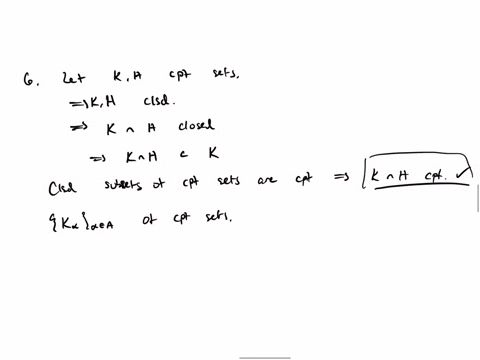 6. Let K, H cpt sets.
⇒ K, H clsd.
⇒ K ∩ H closed
⇒ K ∩ H ⊂ K
Clsd subsets of cpt sets are cpt ⇒ K ∩ H cpt. ✓
{K_α}_{α∈A} of cpt sets.